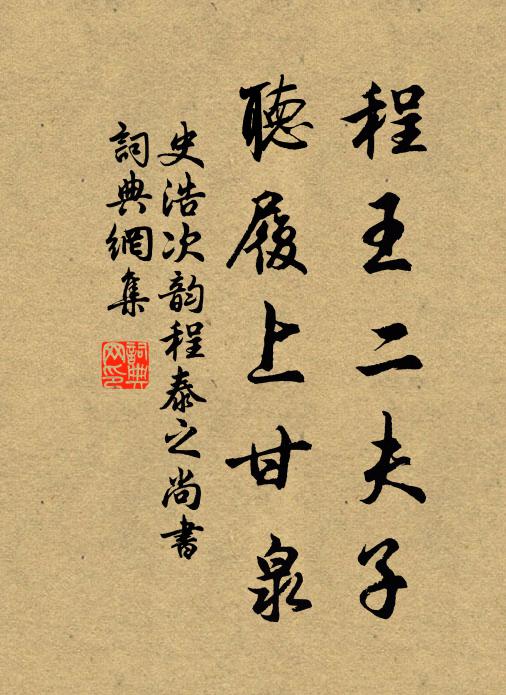 程王二夫子
聽履上甘泉
史浩次韵程泰之尚書
詞典網集
詞典
网印